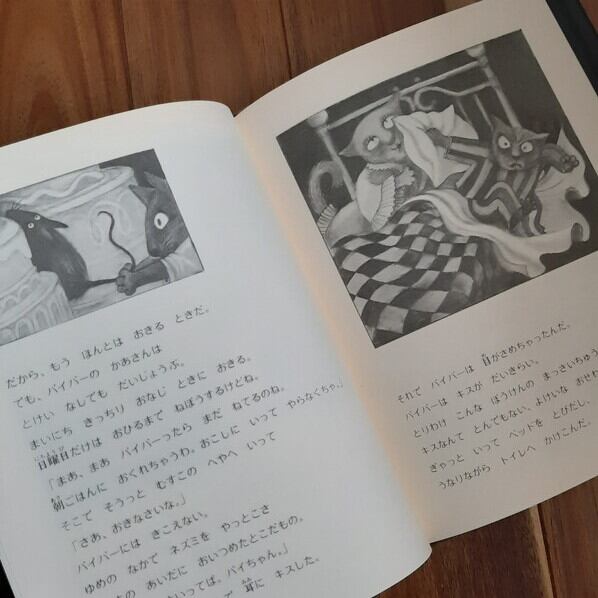 だから、もう ほんとは おきる ときだ。
でも、パイパーの かあさんは
とけい なしでも だいじょうぶ。
まいにち きっちり おなじ ときに おきる。
日曜日だけは おひるまで ねぼうするけどね。
「まあ、まあ パイパーったら まだ ねてるのね。
朝ごはんに おくれちゃうわ。おこしに いって やらなくちゃ。」
そこで そうっと むすこの へやへ いって
「さあ、おきなさいな。」
パイパーには きこえない。
ゆめの なかで ネズミを やっとこさ
の あいだに おいつめたとこだもの。
といってば。パイちゃん。」
で 耳に キスした。
それで パイパーは 目がさめちゃったんだ。
パイパーは キスが だいきらい。
とりわけ こんな ぼうけんの まっさいちゅう
キスなんて とんでもない、よけいな おせわ
ぎゃっと いって ベッドを とびだし、
うなりながら トイレへ かけこんだ。